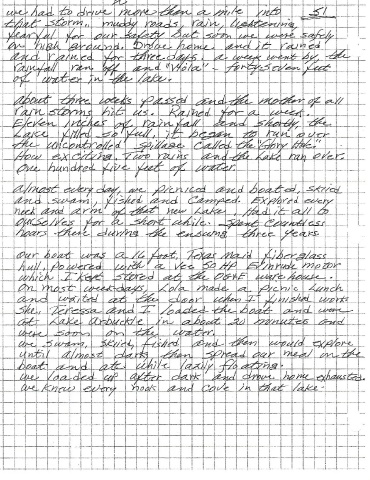 51
we had to drive more than a mile into
that storm, muddy roads, rain, lightening,
fearful for our safety but soon we were safely
on high ground. Drove home and it rained
and rained for three days. a week went by, the
rainfall ran off and "Wola" - forty seven feet
of water in the lake.
About three weeks passed and the mother of all
rain storms hit us. Rained for a week.
Eleven inches of rain fell and shortly the
Lake filled so full, it began to run over
the uncontrolled spillage called the "Glory Hole."
How exciting. Two rains and the Lake ran over.
One hundred five feet of water.
Almost every day, we picniced and boated, skiied
and swam, fished and camped. Explored every
neck and arm of that new Lake, Had it all to
ourselves for a short while. Spent Countless
hours there during the ensuing three years
Our boat was a 16 foot, Texas Maid fiberglass
hull, powered with a Vee 50 HP Evinrude motor
which I kept stored at the warehouse.
On most weekdays, Lola made a picnic Lunch
and waited at the door when I finished work.
She, Teressa and I loaded the boat and were
at Lake Arbuckle in about 20 minutes and
were soon on the water.
We swam, skiied, fished and then would explore
until almost dark, then spread our meal on the
boat and ate while lazily floating.
We loaded up after dark and drove home exhausted.
We knew every nook and cove in that lake.